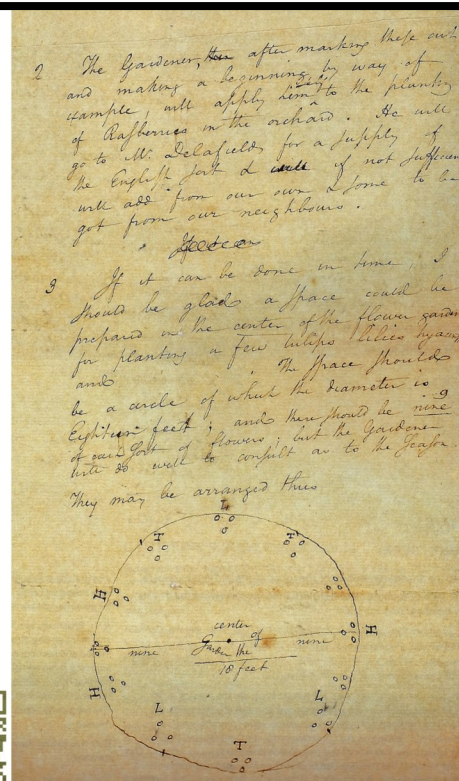 2 The Gardener, after marking these out
and making a beginning by way of
example will apply himself to the planting
of Rasberries in the orchard. He will
go to Mr. Delafield's for a supply of
the English sort & if not sufficient
will add from our own & some to be
got from our neighbours.
3 If it can be done in time, I
should be glad a space could be
prepared in the center of the flower garden
for planting a few tulips lilies hyacinths
and The space should
be a circle of which the diameter is
Eighteen feet; and there should be nine 9
of each sort of flowers; but the Gardener
will do well to consult as to the season
They may be arranged thus
L
T T
H
center
of
nine Garden the nine H
18 feet
H
L L
T